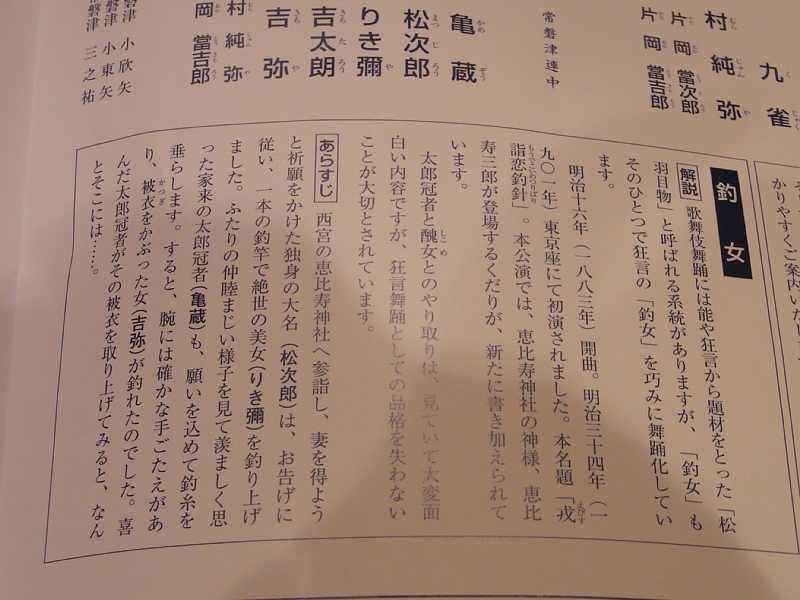 九雀
くじゃく
村純弥
むらじゅんや
片岡當次郎
片岡當吉郎
常磐津連中
亀蔵
かめぞう
松次郎
まつじろう
りき彌
や
吉太朗
きちたろう
吉弥
きちや
村純弥
むらじゅんや
岡當吉郎
磐津 小欣矢
磐津 小東矢
常磐津 三之祐
かりやすくご案内いた
釣女
解説 歌舞伎舞踊には能や狂言から題材をとった「松
羽目物」と呼ばれる系統がありますが、「釣女」も
そのひとつで狂言の「釣女」を巧みに舞踊化してい
ます。
明治十六年(一八八三年)開曲。明治三十四年(一
九〇一年)東京座にて初演されました。本名題「戎
えびす
詣恋釣針」。本公演では、恵比寿神社の神様、恵比
もうでこいのつりばり
寿三郎が登場するくだりが、新たに書き加えられて
います。
太郎冠者と醜女とのやり取りは、見ていて大変面
しこめ
白い内容ですが、狂言舞踊としての品格を失わない
ことが大切とされています。
あらすじ 西宮の恵比寿神社へ参詣し、妻を得よう
と祈願をかけた独身の大名(松次郎)は、お告げに
従い、一本の釣竿で絶世の美女(りき彌)を釣り上げ
ました。ふたりの仲睦まじい様子を見て羨ましく思
った家来の太郎冠者(亀蔵)も、願いを込めて釣糸を
垂らします。すると、腕には確かな手ごたえがあ
り、被衣をかぶった女(吉弥)が釣れたのでした。喜
かつぎ
んだ太郎冠者がその被衣を取り上げてみると、なん
とそこには……。